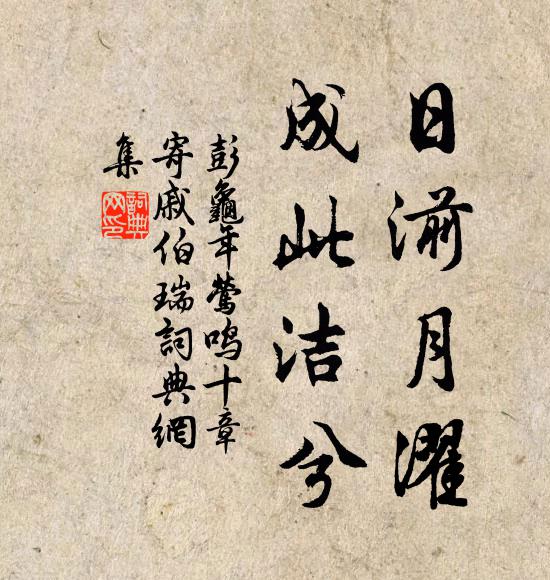 日湔月濯
成此洁兮
彭龜年鶯鳴十章
寄戚伯瑞詞典網
集
詞典
网印